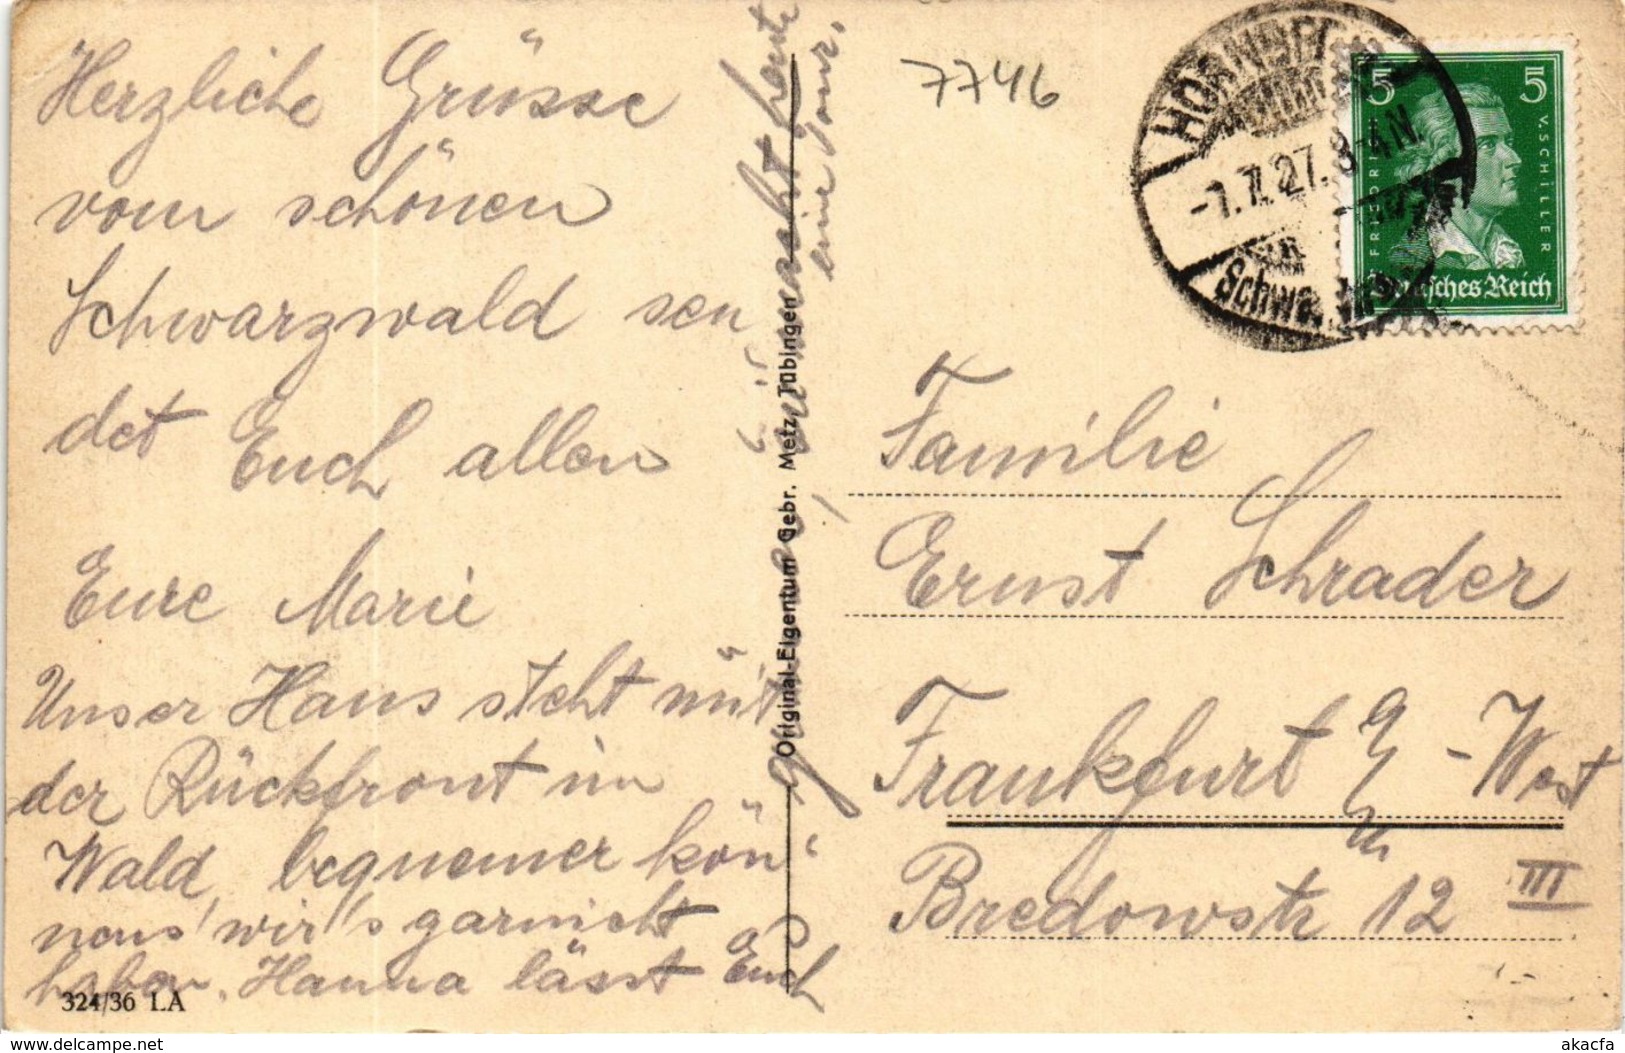 Herzliche Grüsse
vom schönen
Schwarzwald sen
det Euch allen
Eure Marie
Unser Haus steht mit
der Rückfront im
Wald, bequemer kön-
nens' wir's garnicht
haben. Hanna lässt Euch
grüssen,
heute
eine Tour.
324/36 LA
Original-Eigentum Gebr. Metz, Tübingen
7746
HORNBERG
-1.7.27. 3-4 N.
Schwarzw
5 5
FRIEDRICH V. SCHILLER
Deutsches Reich
Familie
Ernst Schrader
Frankfurt a/M -West
Bredowstr 12 III
akacfa